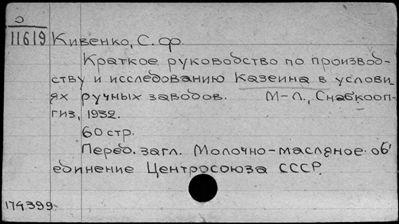 Э
11619
Кивенко, С. Ф
Краткое руководство по производ-
ству и исследованию Казеина в услови-
ях ручных заводов. М-Л., Снабкооп-
гиз, 1932.
60 стр.
Перед. загл. Молочно-масляное об'
единение Центросоюза СССР.
174399.